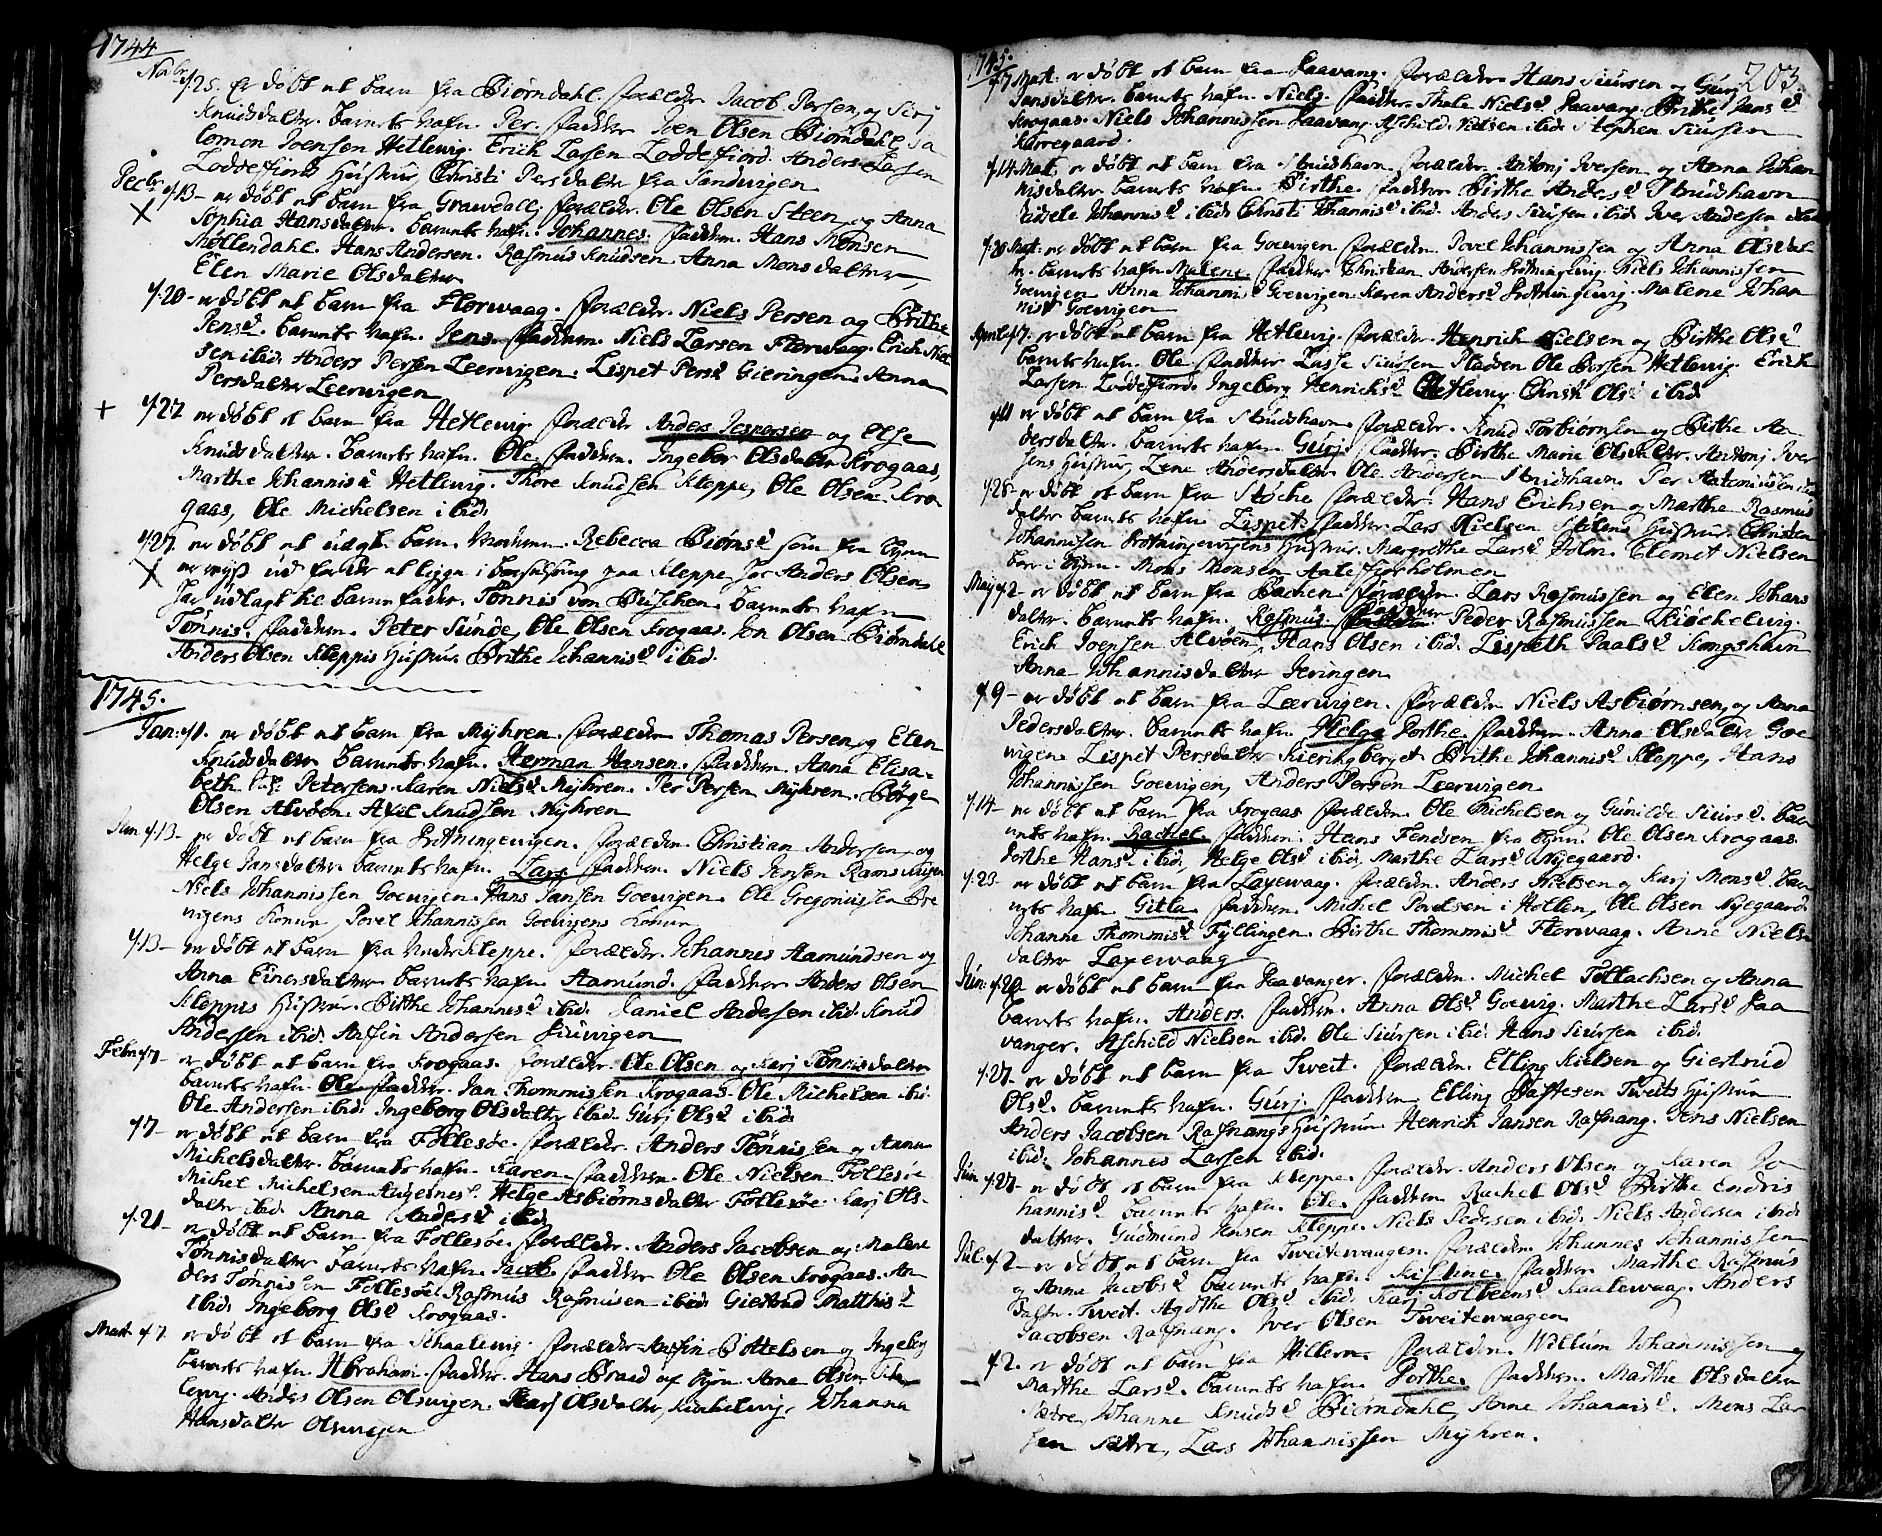 1744
Novbr. d. 25. er døbt et barn fra Biørndahl. foræld. Jacob Persen og Siri
Knudsdatter. barnets nafn. Per. faddere Joen Olsen Biørndahl. Sa
lomon Joensen Hetlewig. Erich Larsen Loddefiord. Anders Larsen
Loddefiord hustrue Christi Persdatter fra Sandwigen
Decbr. d. 13 - er døbt et barn fra Grawdall, forældr. Ole Olsen Steen og Anna
Sophia Hansdatter. barnets nafn. Johannes. faddere. Hans Monsen
Møllendahl. Hans Andersen. Rasmus Knudsen. Anna Monsdatter,
Elen Marie Olsdatter
d. 20 - er døbt et barn fra Florwaag. forældr. Niels Persen og Brithe
Jensd. barnets nafn. Jens. faddere. Niels Larsen Florwaag. Erich
sen ibid. Anders Persen Leerwigen. Lispet Persd. Gieringen. Anna
Persdatter Leerwigen
+ d. 27 er døbt et barn fra Hetlewig forældr Anders Jespersen og Else
Knudsdatter. barnets nafn. Ole. faddere. Ingebor Olsdatter Krogaas,
Marthe Johannisd. Hetlewig. Thore Knudsen Kleppe, Ole Olsen Kro
gaas, Ole Michelsen ibid.
d. 27. er døbt et uægt. barn. Moderen Rebecca Biørnsd. som fra Byen
er wiist ud for at ligge i barselseng paa Kleppe hos Anders Olsen
har udlagt til barnefader. Tønnis von Büschen. barnets nafn
Tønnis. faddere. Peter Sunde, Ole Olsen Krogaas. Jon Olsen Biørndahl
Anders Olsen Kleppis hustrue Brithe Johannisd. ibid.
1745.
Jan: d. 1. er døbt et barn fra Myhren. forældre Thomas Persen og Elen
Knudsdatter barnets nafn. Herman Hansen. faddere. Anna Elisa-
beth Petersens. Karen Nielsd. Myhren. Per Persen Myhren. Børge
Olsen Alvøen. Axel Knudsen Myhren
Jan d. 13 - er døbt et barn fra Brotningewigen. forældre. Christian Andersen og
Helge Jansdatter. barnets nafn. Lars faddere. Niels Jensen Rams
Niels Johannissen Goewigen. Hans Jansen Goewigen. Ole Gregoriussen Bre
wigens Konne, Povel Johannissen Goewigens Konne
d. 13 - er døbt et barn fra Underkleppe. forældr. Johannes Aamundsen og
Anna Einersdatter barnets nafn. Aamund. faddere Anders Olsen
Kleppis hustrue. Birthe Johannesd. ibid. Daniel Andersen ibid. Knud
Andersen ibid. Anfin Andersen
Febr. d. 7 - er døbt et barn fra Krogaas. forældre. Ole Olsen og Karj Tønnisdatter
barnets nafn. Ole faddere. Jan Thommissen Krogaas. Ole Michelsen ibi.
Ole Andersen ibid. Ingeborg Olsdatter ibid. Gurj Olsd. ibid.
d. 7 - er døbt et barn fra Follesøe. forældr. Anders Tønnissen og Anna
Michelsdatter. barnets nafn. Karen. faddere. Ole Nielsen Follesøe
Michel Michelsen. Helge Asbiørnsdatter Follesøe. Karj Ols-
datter ibid. Anna Andersd. ibid.
d. 21 - er døbt et barn fra Follesøe. forældr. Anders Jacobsen og Malene
Tønnisdatter barnets nafn. Jacob. faddere Ole Olsen Krogaas. An
ders Tønnissen Follesøe. Rasmus Rasmusen ibid. Giertrud Matthisd.
ibid. Ingeborg Olsd. Krogaas.
Mart. d. 7. er døbt et barn fra Skaalewig. forældre Anfin Bottelsen og Ingeborg
barnets nafn. Abraham. faddere. Hans Braad af Byen. Arne Olsen
lewig. Anders Olsen Olswigen. Karj Olsdatter, Johanna
Hansdatter Olswigen
1745. 203.
d. 7 Mart. er døbt et barn fra Haavang. forældre. Hans Siursen og Gurj
Jansdatter. barnets nafn. Niels. faddere. Thale Nielsd. Haavang. Brithe Jansd.
Krogaas. Niels Johannissen Haavang. Aschild Nielsen ibid. Stephen Siursen
Kierregaard.
d. 14 Mart. er døbt et barn fra Strudshavn. forældre. Antonj Iversen og Anna Johan
nisdatter. barnets nafn. Birthe. faddere Birthe Andersd. Strudshavn
Sidsele Johannisd. ibid. Christi Johannisd. ibid. Anders Siursen ibid. Iver Andesen
d. 28 Mart. er døbt et barn fra Goewigen forældre. Povel Johannissen og Anna Olsdat
ter. barnets nafn Malene. faddere Christian Andersen Brotningewig. Niels Johannissen
Goewigen Anna Johannisd. Goewigen. Karen Andersd. Brotningewig. Malene Johan
nisd. Goewigen
April d. 7. er døbt et barn fra Hetlewig. forældre Henrich Nielsen og Birthe Olsd.
barnets nafn. Ole. faddere Lasse Siurssen Pladsen Ole Børsen Hetlewig. Erich
Larsen Loddefiord. Ingeborg Henrichsd. Hetlewig. Christi Olsd. ibid
d. 11 er døbt et barn fra Strudshavn. forældre. Knud Torbiørnsen og Birthe An
dersdatter. barnets nafn. Gurj. faddere. Birthe Marie Olsdatter. Antonj Iver
sens hustrue, Lene Andersdatter. Ole Andersen Strudshavn. Per
d. 28 - er døbt et barn fra Støche forældre. Hans Erichsen og Marthe Rasmus
datter barnets nafn. Lispet. faddere. Lars Nielsen hustrue. Christen
Johannissen Brotningewigens hustrue. Margrethe Larsd. Holm. Clemet Nielsen
bor i Byen. Mons Monsen Aalefiorholmen
Maij d. 2 - er døbt et barn fra Bachen. forældre. Lars Rasmussen og Elen Johans
datter. barnets nafn. Rasmus. faddere Peder Rasmussen Kiøchelwig.
Erich Joensen Alvøen, Hans Olsen ibid. Lispeth Paalsd. Kongshavn
Anna Johannisdatter Geringen
d. 9 - er døbt et barn fra Leerwigen. forældre Niels Asbiørnsen og Anna
Pedersdatter. barnets nafn Helge Dorthe. faddere. Anna Olsdatter Goe
wigen Lispet Persdatter Kieringberget Brithe Johannisd. Kleppe, Hans
Johannissen Goewigen, Anders Persen Leerwigen
d. 14 - er døbt et barn fra Krogaas forældre. Ole Michelsen og Gunilde Siursd. bar
nets nafn. Rachel. faddere. Hans Tendsen fra Byen. Ole Olsen Krogaas.
Dorthe Hansd. ibid, Helge Olsd. ibid, Marthe Larsd. Nygegaard.
d. 23 - er døbt et barn fra Laxewaag. forældre. Anders Nielsen og Karj Monsd. bar
nets nafn Gitla. faddere. Michel Povelsen i Holten, Ole Olsen Nygegaard
Johanne Thommisd. Fyllingen. Birthe Thommisd. Florwaag. Anne Niels
datter Laxewaag
Jun: d. 20 er døbt et barn fra Haavanger. forældre. Michel Tollachsen og Anna
barnets nafn. Anders. faddere. Anna Olsd. Goewig. Marthe Larsd. Haa
vanger. Aschild Nielsen ibid. Ole Siursen ibid. Hans Siursen ibid.
d. 27. er døbt et barn fra Tweit. forældre. Elling Nielsen og Giertrud
Olsd. barnets nafn. Gurj. faddere. Elling Døftesen Tweits hustrue
Anders Jacobsen Rafnangs hustrue Henrich Jansen Rafnang. Jens Nielsen
ibid. Johannes Larsen ibid.
Jun. d. 27 - er døbt et barn fra Kleppe. forældre. Anders Olsen og Karen Jo
hannisd. barnets nafn. Ole. faddere Rachel Olsd. Birthe Endris
datter. Gudmund Jensen Kleppe. Niels Pedersen ibid. Niels Andersen ibid
Jul. d. 2 - er døbt et barn fra Tweitewaagen. forældre Johannes Johannissen
og Anna Jacobsd. barnets nafn. Kistine. faddere Marthe Rasmus
datter. Tweit. Agothe Olsd. ibid. Karj Kolbeensd. Kaalewaag. Anders
Jacobsen Rafnang. Iver Olsen Tweitewaagen
d. 2. er døbt et barn fra Hillern. forældre. Willum Johannissen og
Marthe Larsd. barnets nafn Dorthe. faddere. Marthe Olsdatter
Sædre, Johanne Knudsd. Biørndahl, Anne Johannisd. Mons Lar
sen Sætre, Lars Johannissen Myhren.